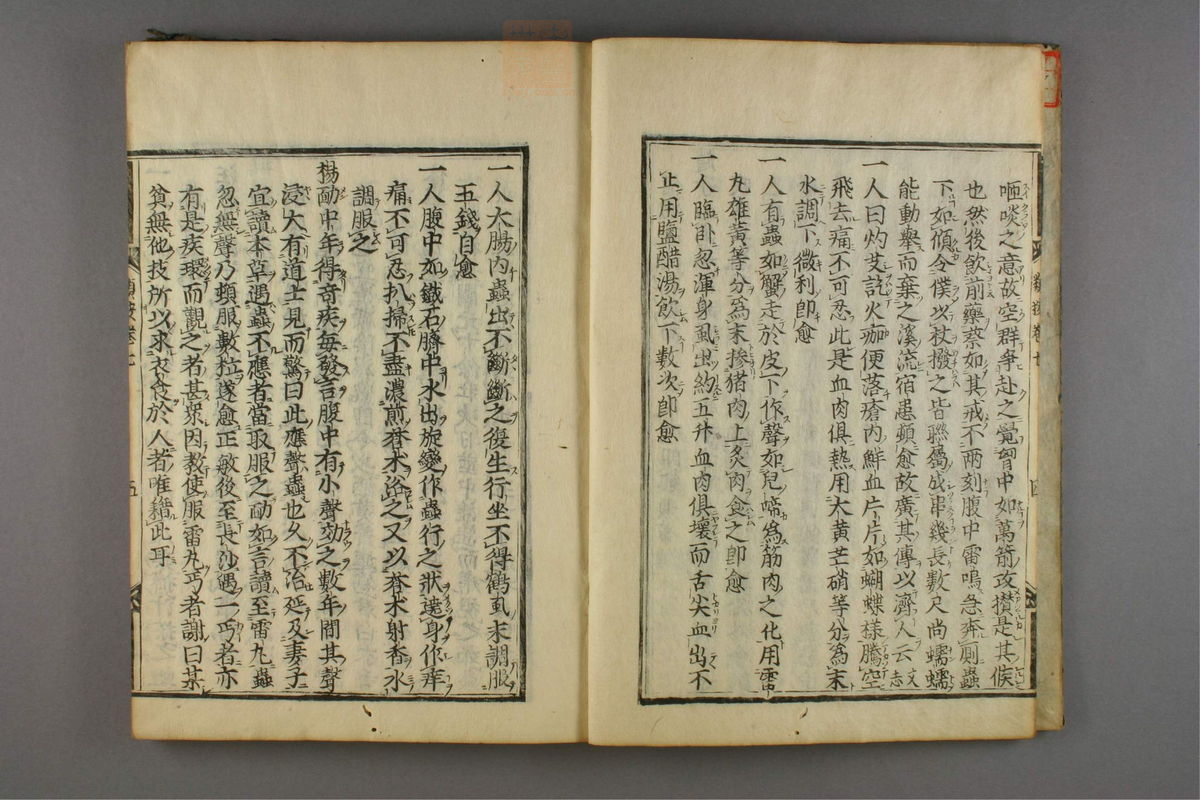 咂啖之意故空群爭赴之覺胷中如萬箭攻攢是其候
也然後飲前藥蔡如其戒不兩刻腹中雷鳴急奔厠蟲
下如傾令僕以杖撥之皆聯屬成串幾長數尺尚蠕蠕
能動舉而棄之溪流宿患頓愈故廣其傳以濟人云
一人曰灼艾訖火痂便落瘡内鮮血片片如蝴蝶樣騰空
飛去痛不可忍此是血肉俱熱用大黄芒硝等分爲末
水調下微利卽愈
一人有蟲如蟹走於皮下作聲如兒啼爲筋肉之化用雷
丸雄黄等分爲末摻猪肉上炙肉食之卽愈
一人臨卧忽渾身虱出約五升血肉俱壞而舌尖血出不
止用鹽醋湯飮下數次卽愈
一人大腸内蟲出不斷斷之復生行坐不得鶴虱末調服
五錢自愈
一人腹中如鐵石臍中水出旋變作蟲行之狀遶身作痒
痛不可忍扒掃不盡濃煎蒼术浴之又以蒼术射香水
調服之
楊勔中年得奇疾毎發言腹中有小聲効之數年間其聲
浸大有道士見而驚曰此應聲蟲也久不治延及妻子
宜讀本草遇蟲不應者當取服之勔如言讀至雷丸蟲
忽無聲乃頓服數粒遂愈正敏後至長沙遇一丐者亦
有是疾環而觀之者甚衆因教使服雷丸丐者謝曰某
貧無他技所以求衣食於人者唯藉此耳